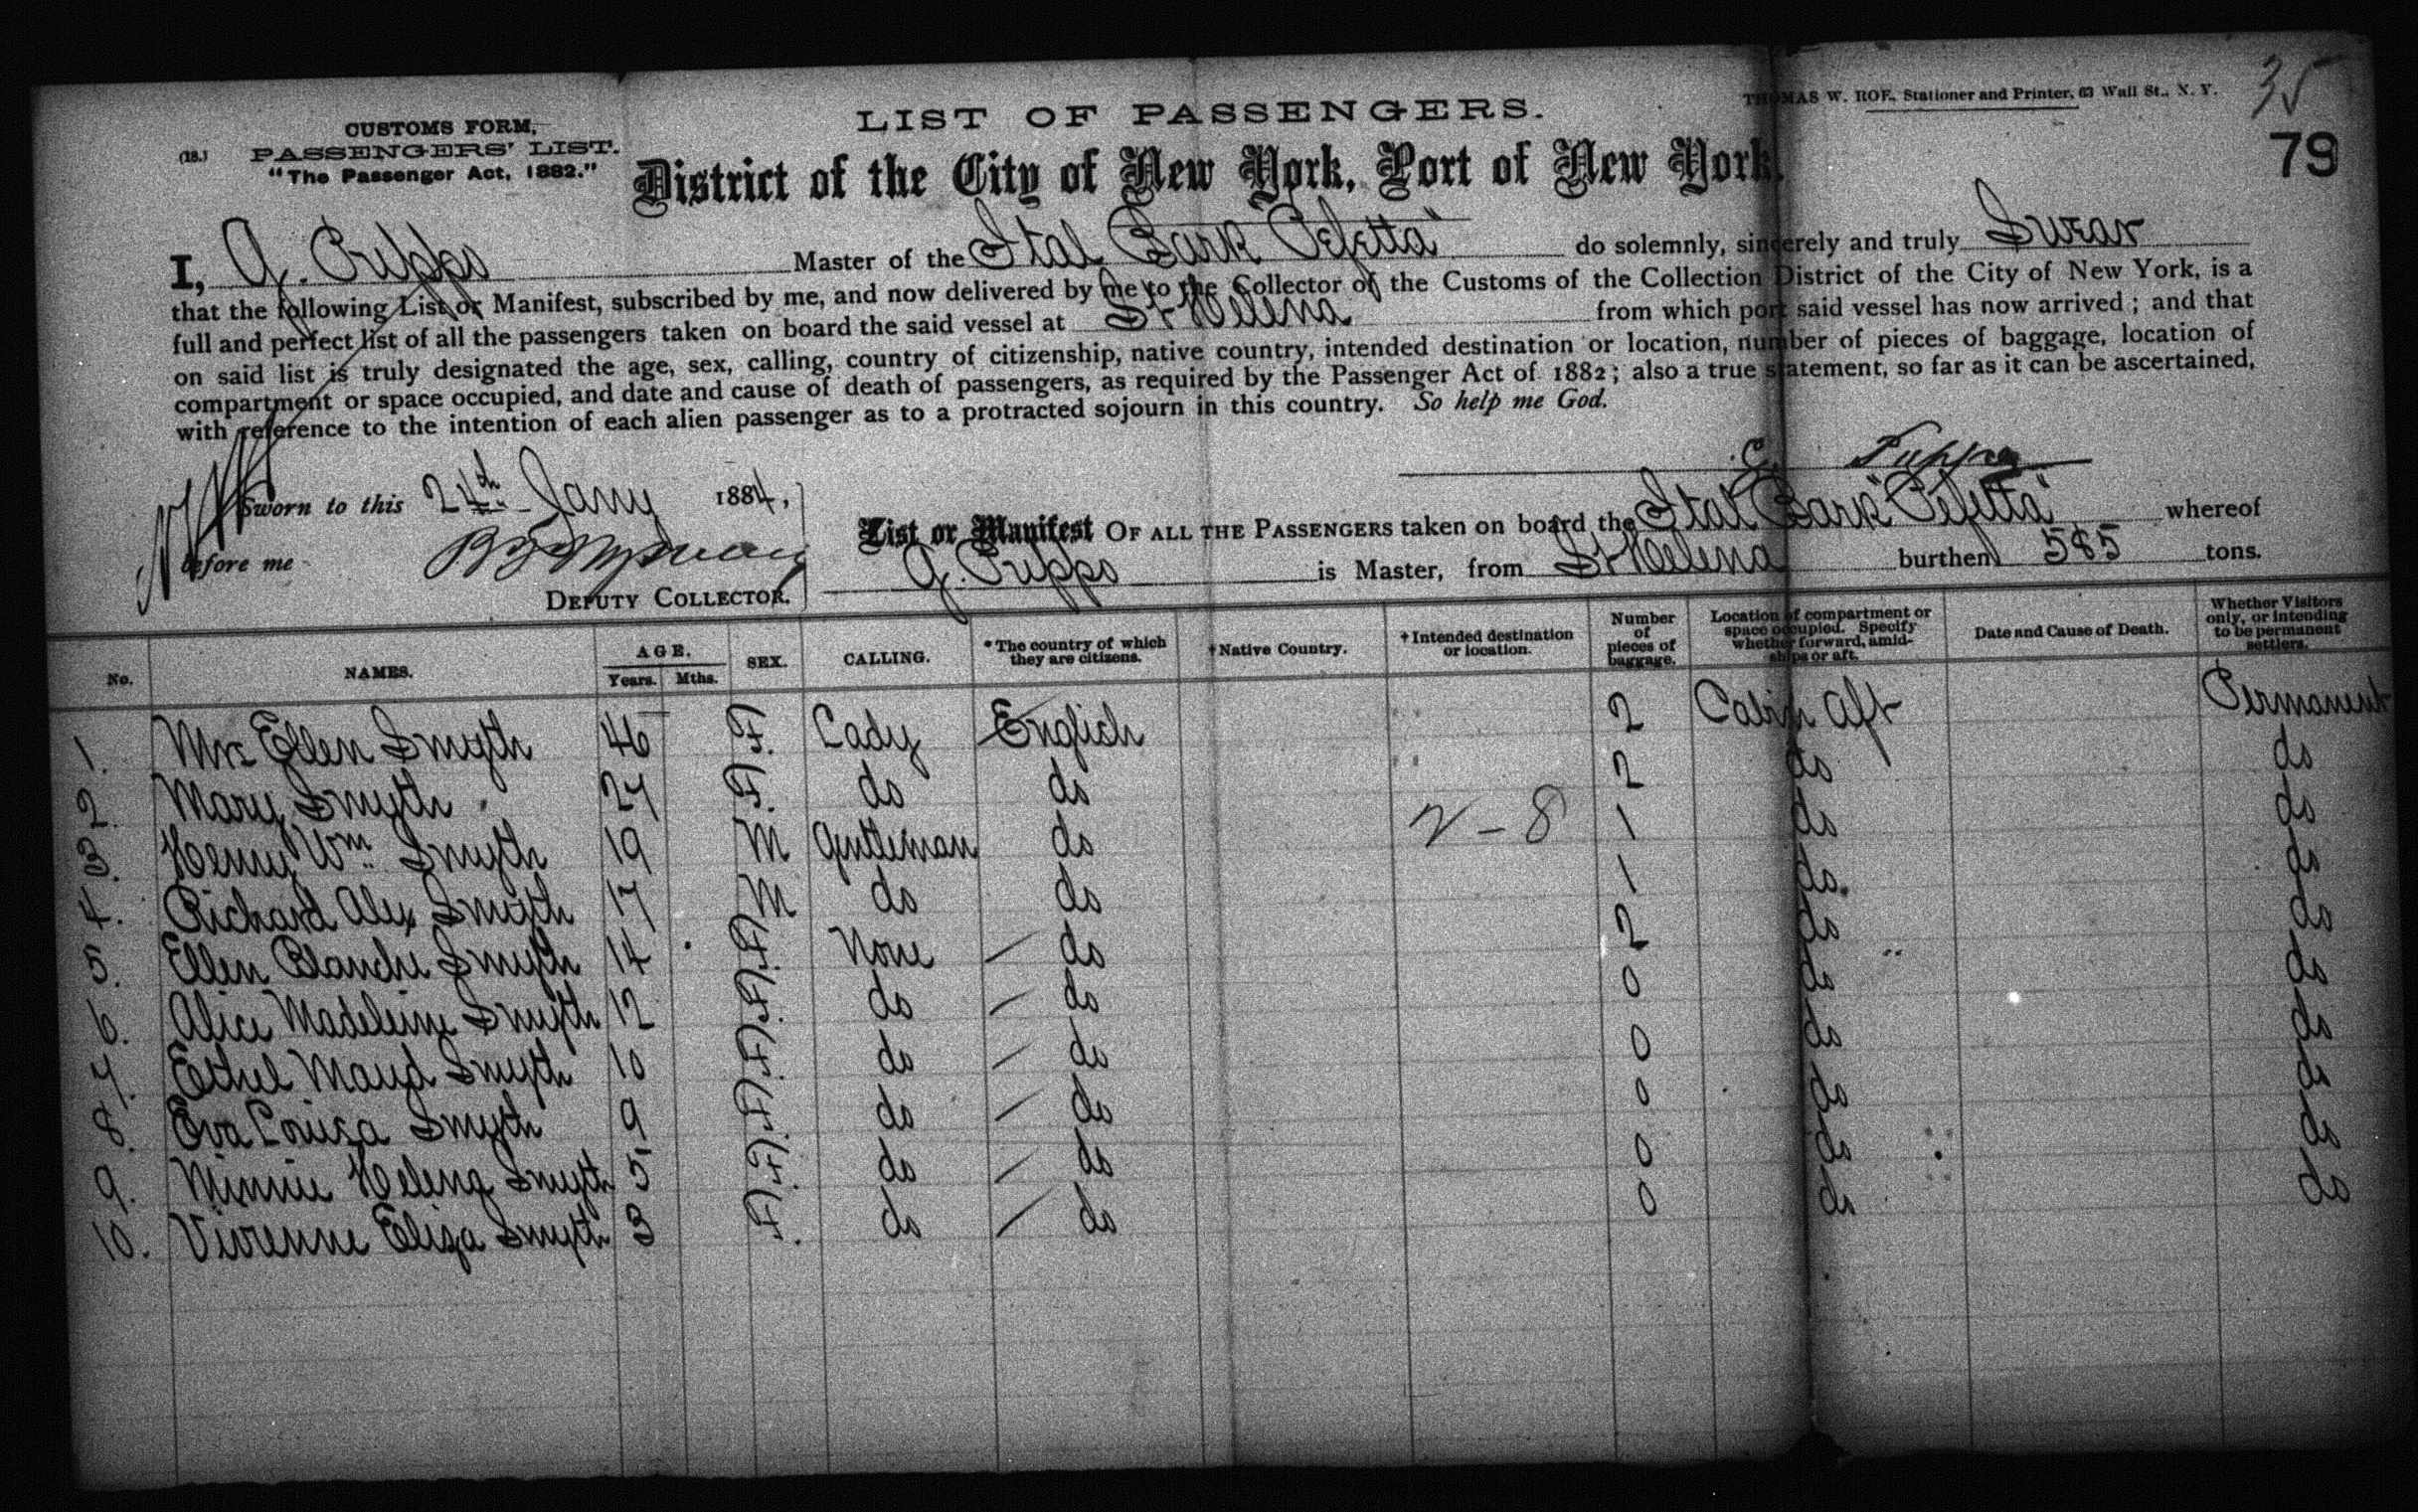 35
THOMAS W. ROE, Stationer and Printer, 63 Wall St., N. Y.
79
LIST OF PASSENGERS.
CUSTOMS FORM,
(18.) PASSENGERS' LIST.
"The Passenger Act, 1882."
District of the City of New York, Port of New York.
I, Master of the Ital Bark do solemnly, sincerely and truly Swear
that the following List or Manifest, subscribed by me, and now delivered by me to the Collector of the Customs of the Collection District of the City of New York, is a
full and perfect list of all the passengers taken on board the said vessel at St Helena from which port said vessel has now arrived; and that
on said list is truly designated the age, sex, calling, country of citizenship, native country, intended destination or location, number of pieces of baggage, location of
compartment or space occupied, and date and cause of death of passengers, as required by the Passenger Act of 1882; also a true statement, so far as it can be ascertained,
with reference to the intention of each alien passenger as to a protracted sojourn in this country. So help me God.
Sworn to this 24th Jany 1884,
before me
DEPUTY COLLECTOR.
List or Manifest OF ALL THE PASSENGERS taken on board the Ital Bark whereof
is Master, from St Helena burthen 585 tons.
No. NAMES. AGE. Years. Mths. SEX. CALLING. *The country of which they are citizens. †Native Country. †Intended destination or location. Number of pieces of baggage. Location of compartment or space occupied. Specify whether forward, amidships or aft. Date and Cause of Death. Whether Visitors only, or intending to be permanent settlers.
1. Mrs Ellen Smyth 46 F. Lady English 2 Cabin Aft Permanent
2. Mary Smyth 24 F. do do 2 do do
3. Henry Wm. Smyth 19 M Gentleman do 2-8 1 do do
4. Richard Alex Smyth 17 M do do 1 do. do
5. Ellen Blanche Smyth 14 F. None do 2 do do
6. Alice Madeleine Smyth 12 F. do do 0 do do
7. Ethel Maud Smyth 10 F. do do 0 do do
8. Eva Louisa Smyth 9 F. do do 0 do do
9. Minnie Helena Smyth 5 F. do do 0 do do
10. Vivienne Eliza Smyth 3 F. do do 0 do do